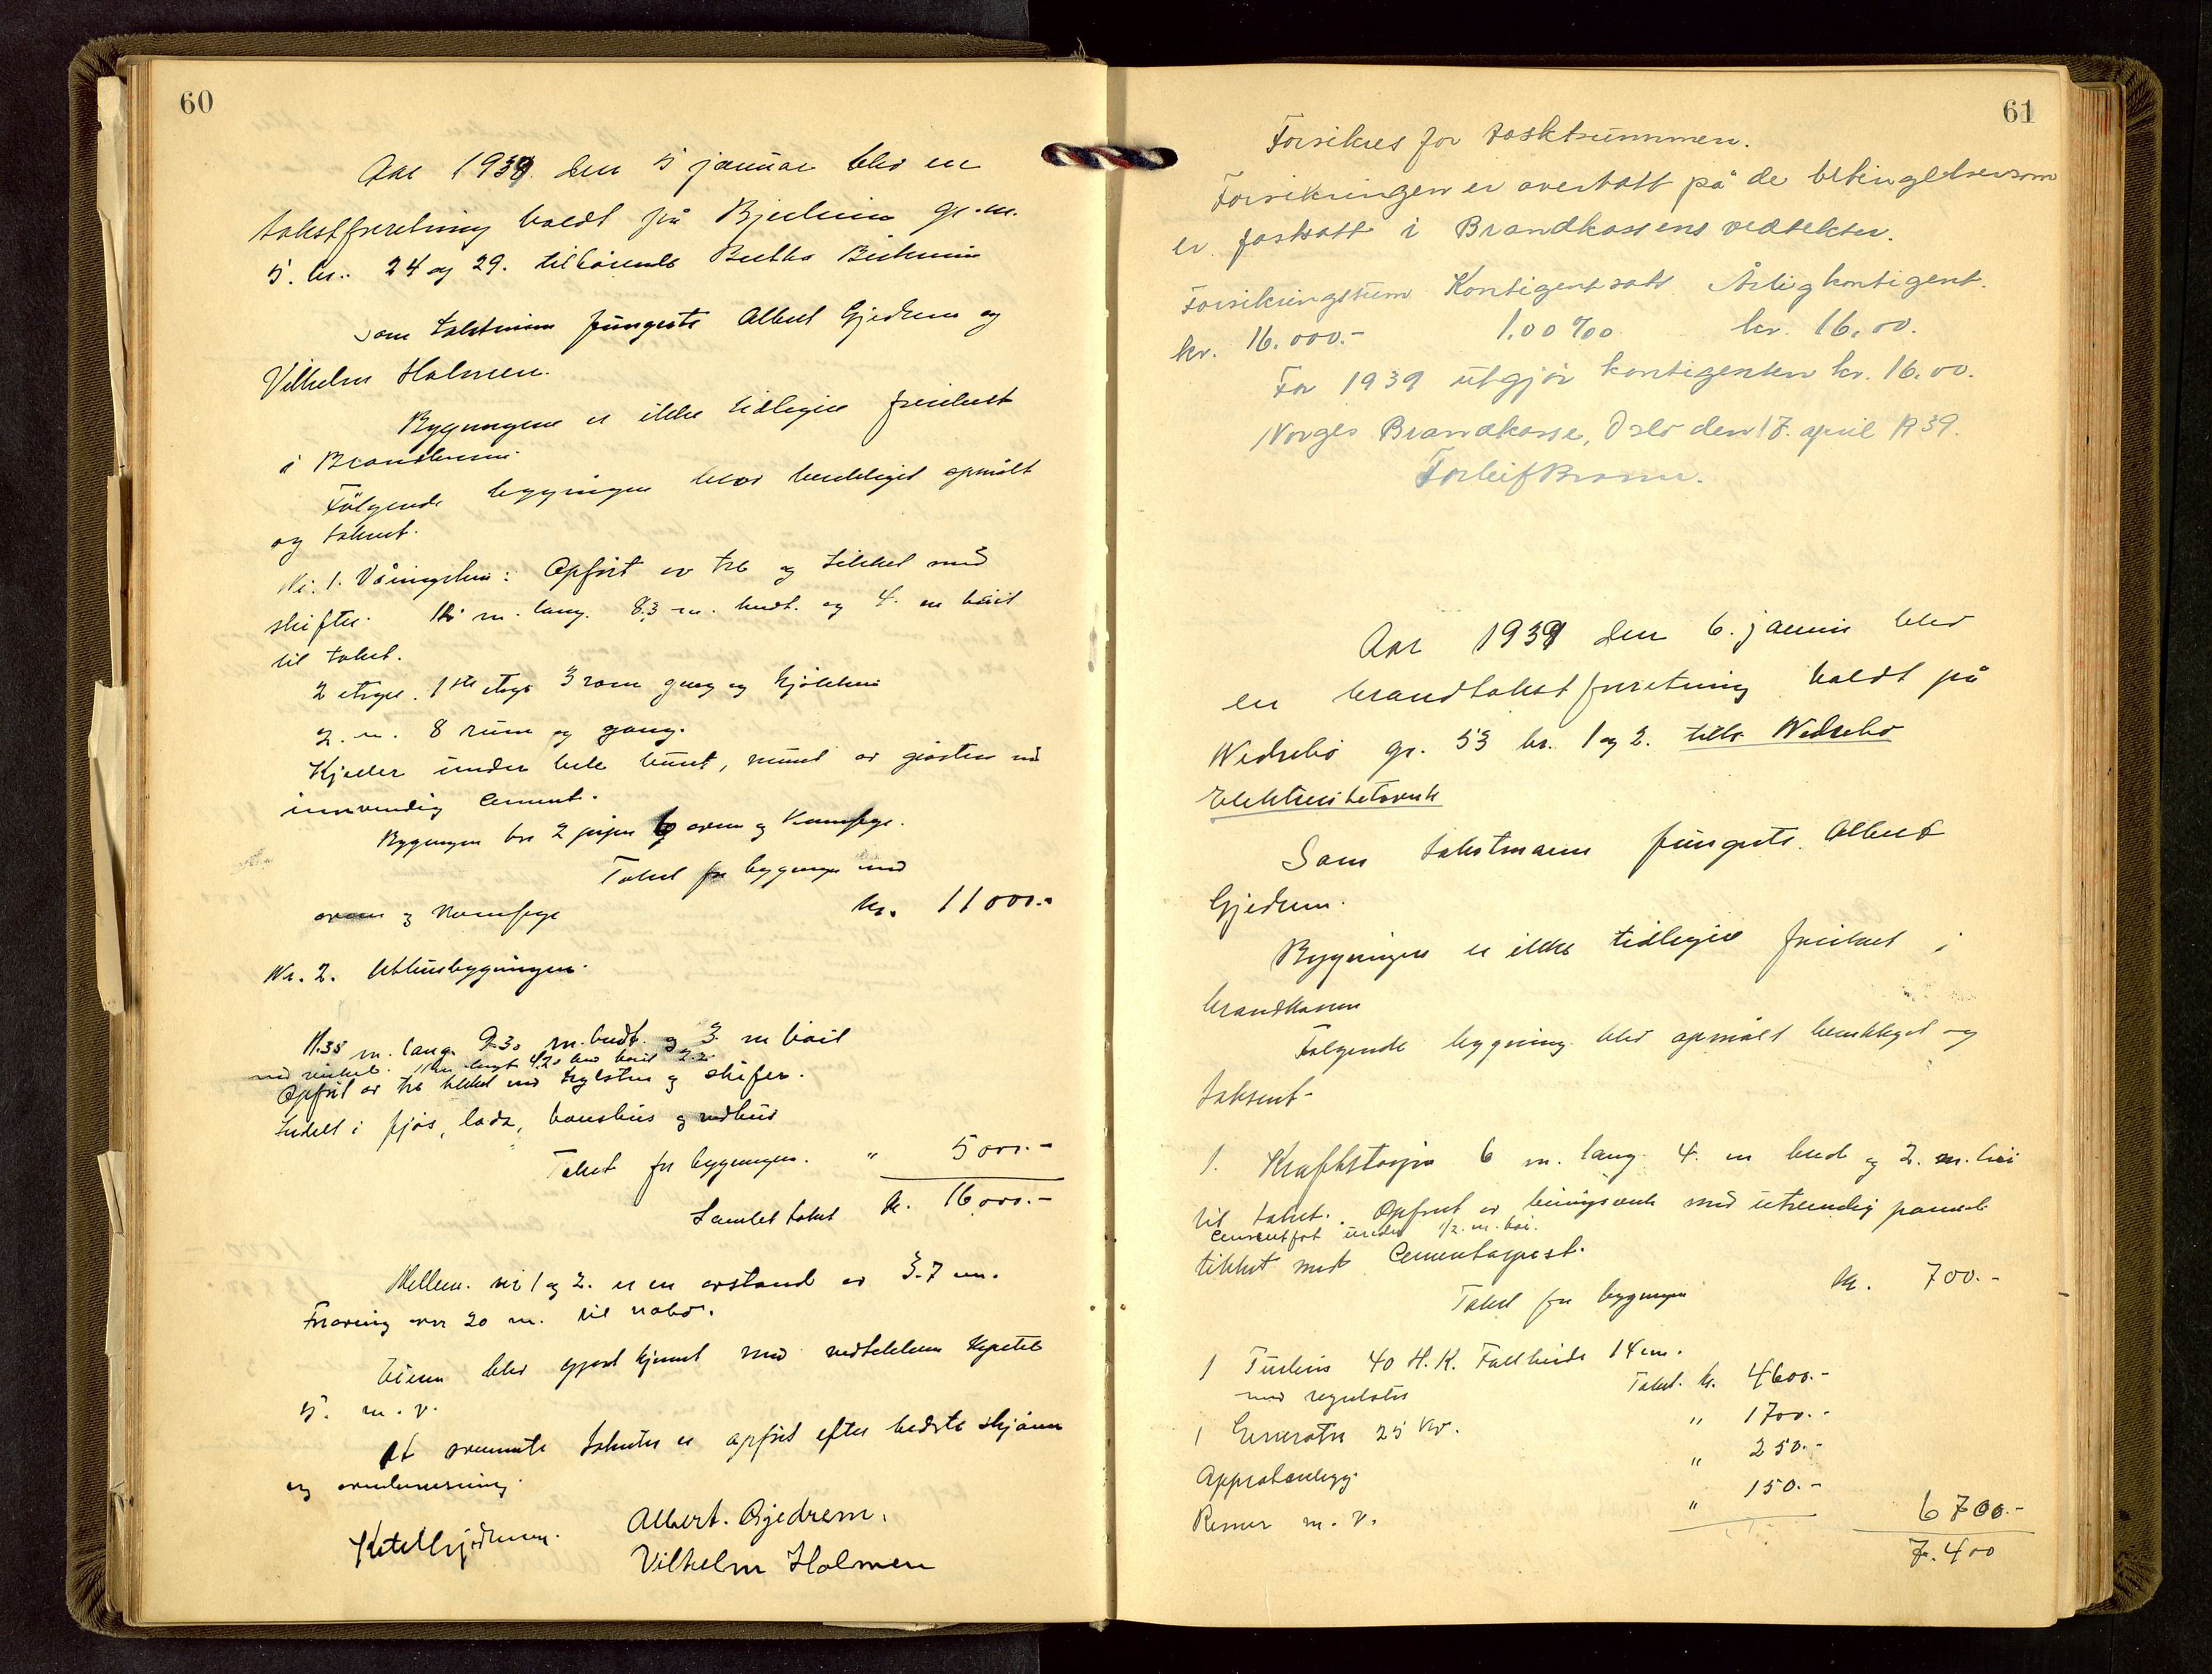 60
Aar 1939 den 5 januar blev en
takstforretning holdt på Bjerheim gr.nr.
5. br. 24 og 29. tilhörende
Som takstmenn fungerte Albert Gjedrem og
Vilhelm Holmen.
Bygningene er ikke tidligere forsikret
i Brandkassen.
Fölgende bygninger blev besiktiget opmålt
og taksert.
Nr. 1. Våningshus: Opfört av tre og tekket med
skifter. m. lang. 8.3 m. bredt. og 4. m höit
til taket.
2 etager. 1ste etage 3 rom gang og kjökken
2. " 8 rum og gang.
Kjeller under hele huset, muret av gråsten med
innvendig cement.
Bygningen har 2 piper 6 ovner og komfyr.
Takst for bygningen med
ovner og komfyr kr. 11000.-
Nr. 2. Uthusbygningen.
11.35 m. lang. 9.30 m. bredt. og 3. m höit
Opfört av tre tekket med teglsten og skifer.
Indelt i fjös, lada, hönsehus og vedhus
Takst for bygningen. " 5000.-
Samlet takst kr. 16000.-
Mellem nr 1 og 2. er en avstand av 3.7 m.
Forövrig over 20 m. til nabo.
Eieren blev gjort kjennt med vedtektene kapitel
5. m.v.
At ovennevnte takster er opfört efter bedste skjönn
og overbevisning.
Albert. Gjedrem.
Vilhelm Holmen
61
Forsikres for tasktsummen.
Forsikringen er overtatt på de betingelser som
er fastsatt i Brandkassens vedtekter.
Forsikringssum Kontigentsatt Årlig kontigent.
kr. 16.000.- 1,00 ‰ kr. 16,00.
For 1939 utgjör kontigenten kr. 16.00.
Norges Brandkasse, Oslo den 17. april 1939.
Aar 1939 den 6. januar blev
en brandtakstforretning holdt på
Vedrebö gr. 53 br. 1 og 2. tilh. Vedrebö
Elektrisitetsverk
Som takstmann fungerte Albert
Gjedrem.
Bygningen er ikke tidligere forsikret i
brandkassen
Fölgende bygning blev opmålt besiktiget og
taksert-
1. Kraftstasjon 6 m. lang 4. m bred og 2. m. höi
til taket. Opfört av bindingsverk med utvendig panel
Cementfot under 1/2 m. höi.
tekket med Cementtagsten.
Takst for bygningen kr. 700.-
1 Turbin 40 H.K. Fallhöide 14 m.
med regulator Takst. kr. 4600.-
1 Generator 25 kw. " 1700.-
Apparatanlegg " 250.-
Remer m.v. " 150.-
6700.-
7.400